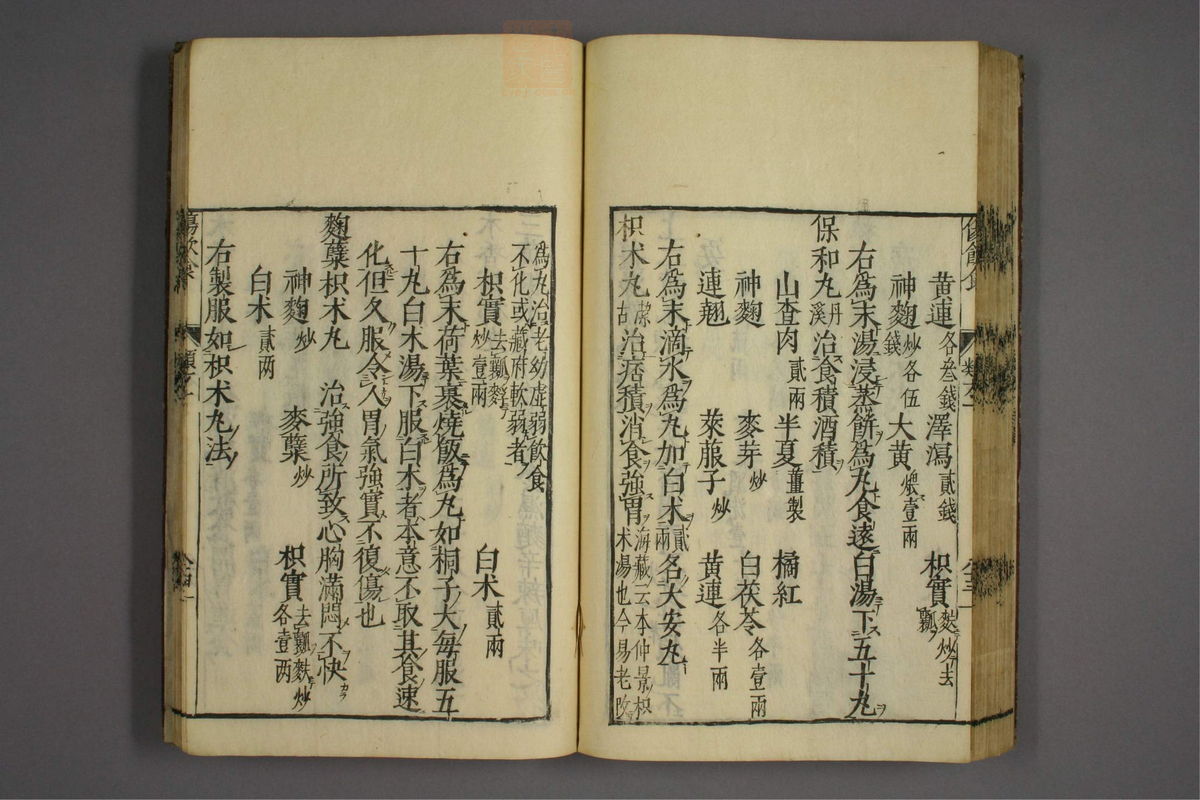 黄連各叁錢 澤瀉貳錢 枳實麩炒去瓤
神麴炒各伍錢 大黄煨壹兩
右爲末湯浸蒸餅爲丸食遠白湯下五十丸
保和丸丹溪 治食積酒積
山查肉貳兩 半夏薑製 橘紅
神麴 麥芽炒 白茯苓各壹兩
連翹 萊菔子炒 黄連各半兩
右爲末滴水爲丸加白术貳兩名大安丸
枳术丸潔古 治痞積消食強胃海藏云本仲景枳术湯也今易老改
爲丸治老幼虚弱飲食不化或藏府軟弱者
枳實去瓤麩炒壹兩 白术貳兩
右爲末荷葉裹燒飯爲丸如桐子大每服五
十丸白术湯下服白术者本意不取其食速
化但久服令人胃氣強實不復傷也
麴糵枳术丸 治強食所致心胸滿悶不快
神麴炒 麥糵炒 枳實去瓤麩炒各壹两
白术貳两
右製服如枳术丸法